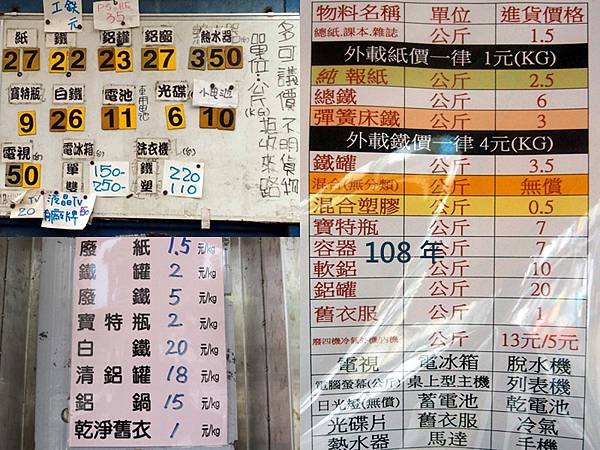 工鉄 元
P5.配 35
紙 鐵 鋁罐 鋁窗 熱水器(台)
27 22 23 27 350
寶特瓶 白鐵 電池 車用電池 光碟(片) 小電池
9 26 11 6 10
電視(台) 電冰箱(台) 洗衣機(台)
50 單 150- 鐵 220
雙 250- 塑 110
TV 20
液晶TV 50
多可議價不明貨物
單位:公斤(KG) 拒收來路
廢紙 1.5 元/kg
鐵罐 2 元/kg
廢鐵 5 元/kg
寶特瓶 2 元/kg
白鐵 20 元/kg
清鋁罐 18 元/kg
鋁鍋 15 元/kg
乾淨舊衣 1 元/kg
物料名稱 單位 進貨價格
總紙.課本.雜誌 公斤 1.5
外載紙價一律 1元(KG)
純 報紙 公斤 2.5
總鐵 公斤 6
彈簧床鐵 公斤 3
外載鐵價一律 4元(KG)
鐵罐 公斤 3.5
混合(無分類) 公斤 無償
混合塑膠 公斤 0.5
寶特瓶 公斤 7
容器 公斤 7
108 年
軟鋁 公斤 10
鋁罐 公斤 20
舊衣服 公斤 1
公斤 13元/5元
電視 電冰箱 脫水機
電腦螢幕(公斤) 桌上型主機 列表機
日光燈(無償) 蓄電池 乾電池
光碟片 舊衣服 冷氣
熱水器 馬達 手機